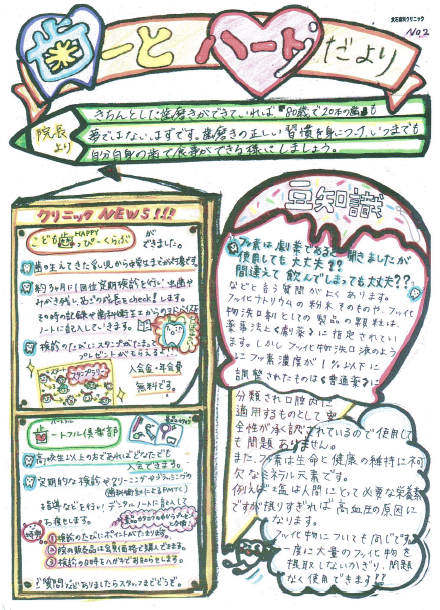 北石歯科クリニック
No.2
歯ーとハートだより
院長より
きちんとした歯磨きができていれば『80歳で20本の歯』も
夢ではないはずです。歯磨きの正しい習慣を身につけ、いつまでも
自分自身の歯で食事ができる様にしましょう。
クリニックNEWS!!!
こども歯っぴーくらぶ
HAPPY
ができました。
歯の生えてきた乳児から中学生までが対象です。
約3か月に1回位定期検診を行い虫歯や
みがき残し、あごの成長をcheckします。
その時の記録や歯科衛生士からのコメントを
ノートに記入していきます。
検診のたびにスタンプがたまって
プレゼントがもらえるよ!!
スタンプラリー
入会金・年会費
無料です。
ハートフル倶楽部
高校生以上の方であればどなたでも
入会できます。
定期的な検診やクリーニング
(歯科衛生士によるPMTC)
指導などを行い、デンタルノートに記入して
お渡しします。
特典
① 検診のたびにポイントがたまります。
② 院内販売品は会員価格で購入できます。
③ 検診のお時期をハガキでお知らせします。
ご質問などありましたらスタッフまでどうぞ。
豆知識
フッ素は劇薬であると聞きましたが
使用しても大丈夫??
間違えて飲んでしまっても大丈夫??
などと言う質問がよくあります。
フッ化ナトリウムの粉末そのものや、フッ化
物洗口剤としての製品の顆粒は、
薬事法で《劇薬》に指定されてい
ます。しかしフッ化物洗口液のよう
にフッ素濃度が1%以下に
調製されたものは《普通薬》に
分類され口腔内に
適用するものとして安
全性が承認されているので使用して
も問題ありません。
また、フッ素は生命と健康の維持に不可
欠なミネラル元素です。
例えば塩は人間にとって必要な栄養素
ですが摂りすぎれば高血圧の原因に
なります。
フッ化物についても同じです。
一度に大量のフッ化物を
摂取しないかぎり、問題
なく使用できます!!